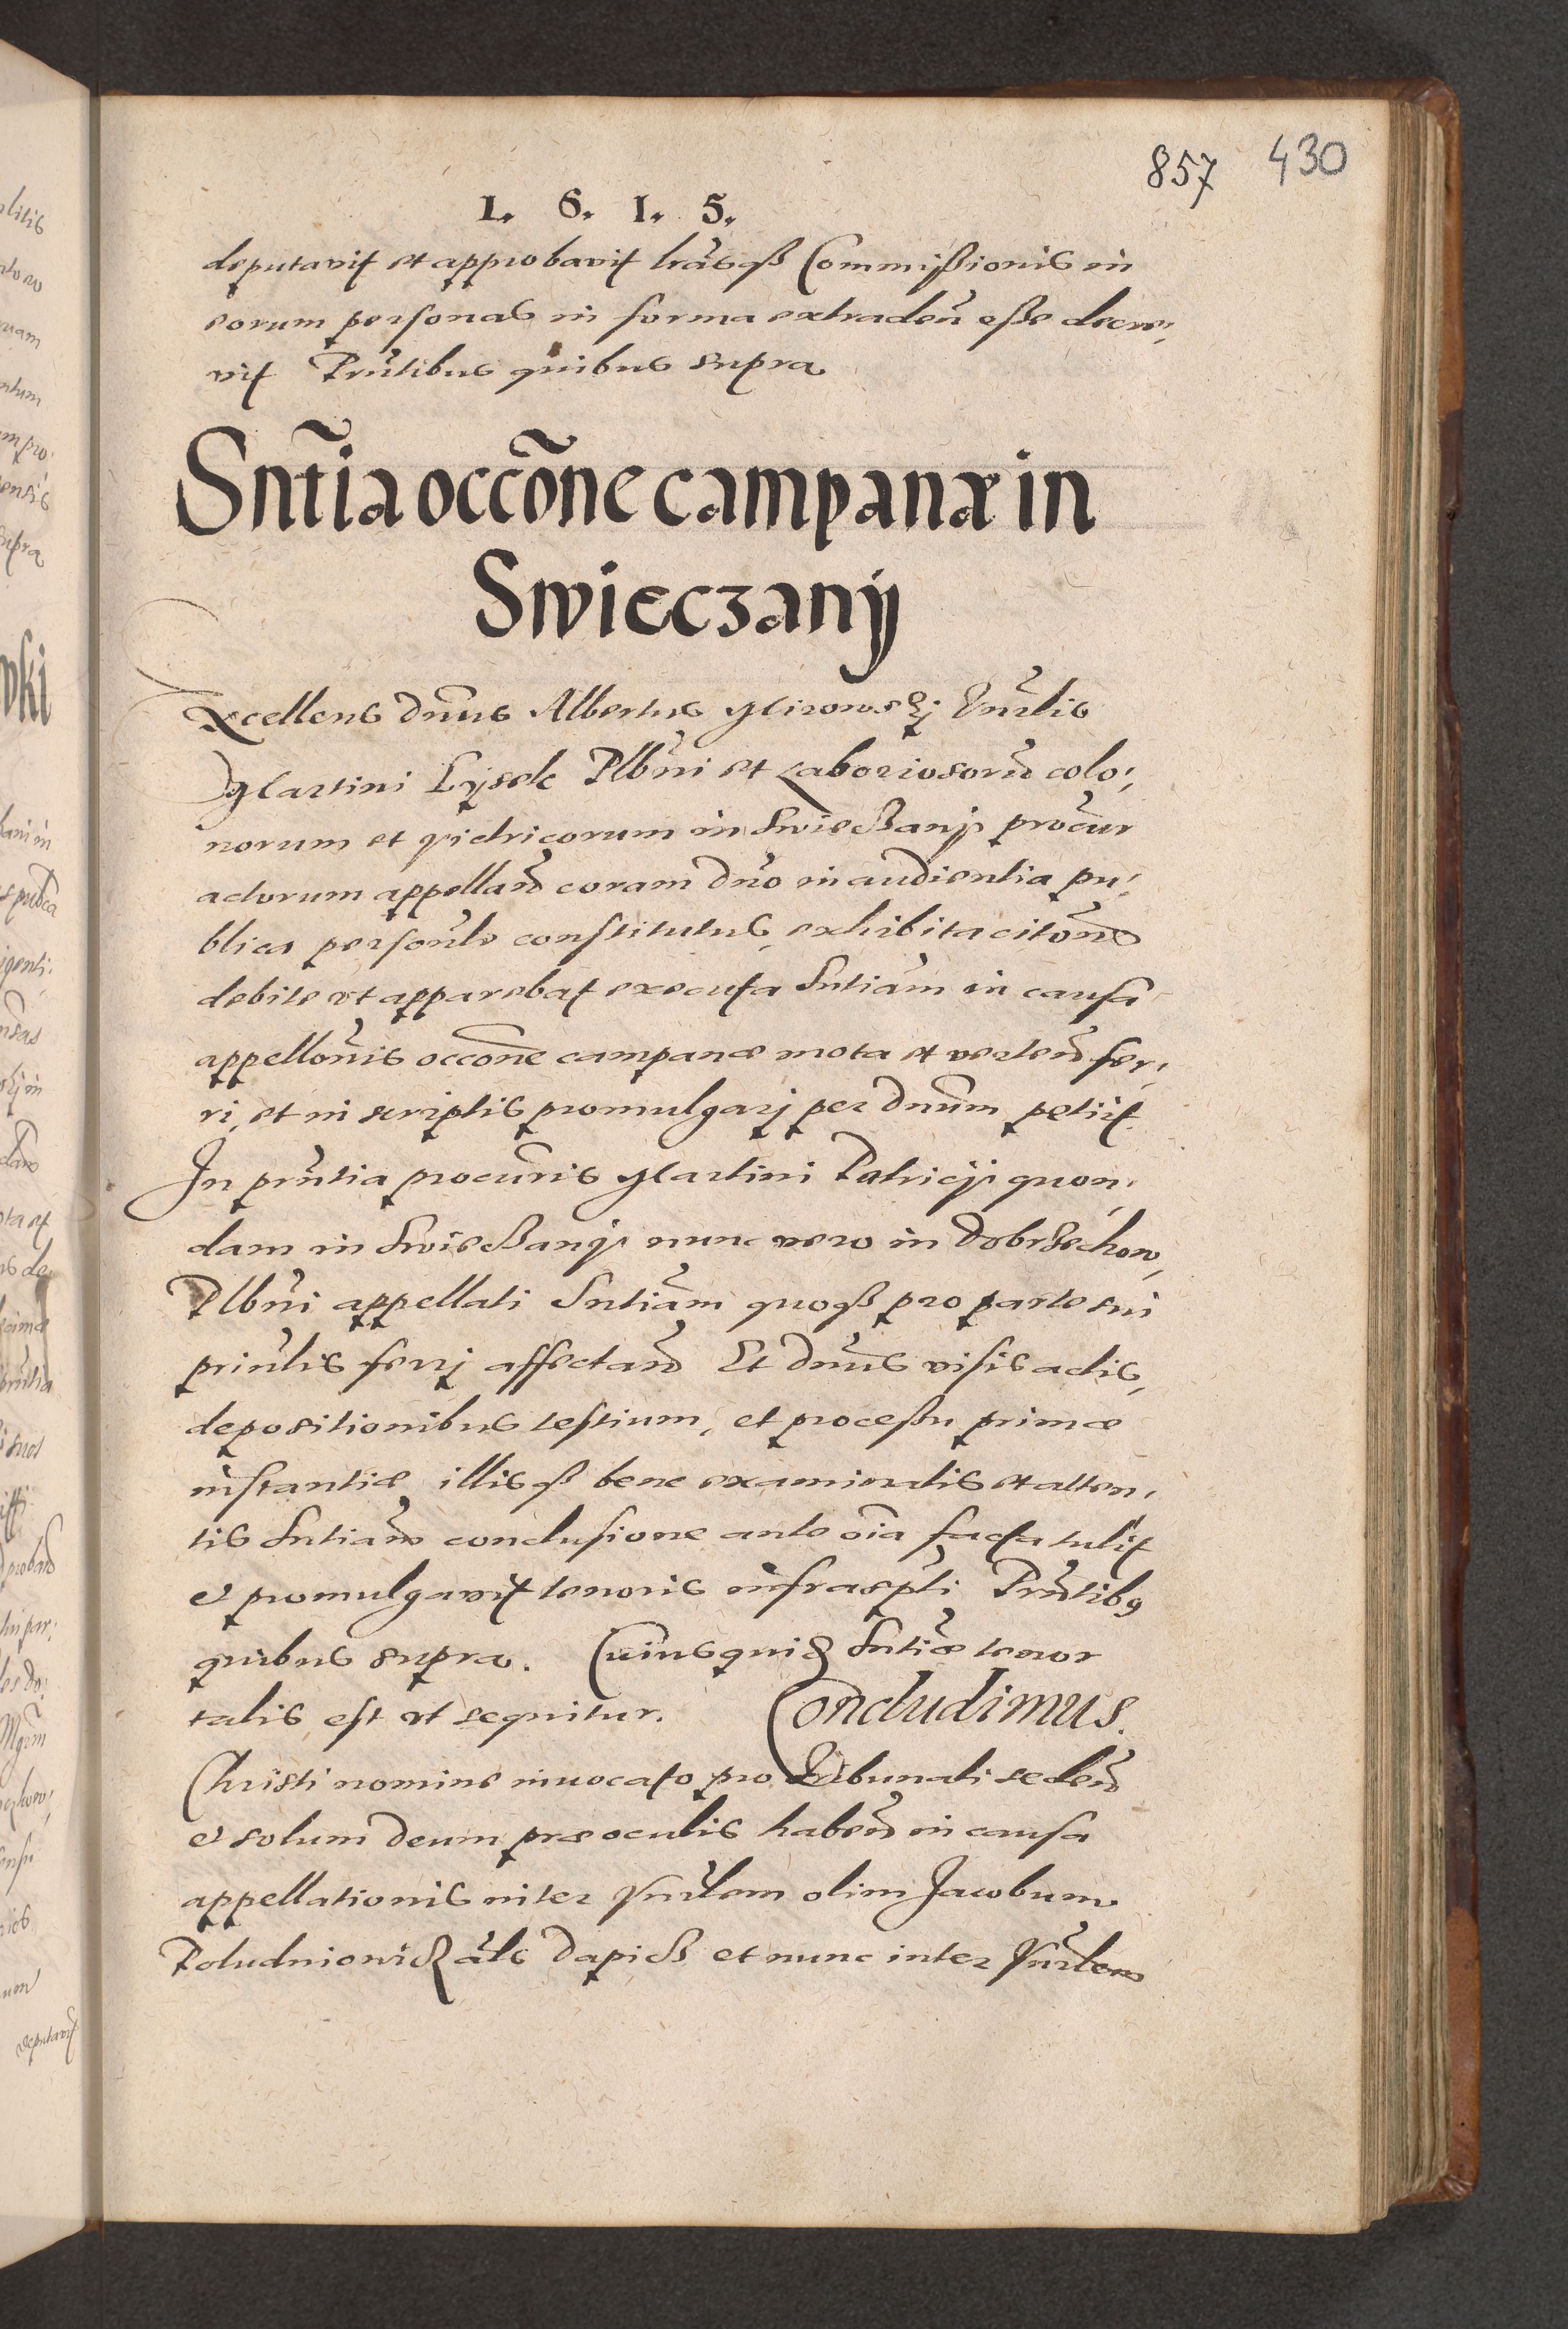 857 430
1. 6. 1. 5.
deputavit et approbavit lrãsqß Commißionis in
eorum personas in forma extraden̄ eße decre,
vit Prn̄tibus quibus supra
Sntĩa occõne campanæ in
Swieczanÿ
Excellens dnūs Albertus Mirowskj Vnrl̄is
Martini Lysek Plbn̄i et Laboriosorum̄ colo,
norum et vidricorum in Swieczanj procūr
actorum appellan̄ coram dnō in audientia pu,
blica personl̄r constitutus, exhibita citōne
debite vt apparebat executa Sntiām in causa
appellōnis occōne campanæ mota et verten̄ fer,
ri, et in scriptis promulgarj per Dnūm petiit.
In prn̄tia procūris Martini Patricij quon,
dam in Swieczanj nunc vero in Dobrzechow,
Plbn̄i appellati Sntiām quoqß pro parte sui
prin̄lis ferrj affectan̄ Et Dnūs visis actis,
depositionibus testium, et proceßu primæ
instantiæ illisqß bene examinatis et atten,
tis Sntiām conclusione ante oīa facta tulit
et promulgavit tenoris infrascpti Prn̄tibq
quibus supra. Cuiusquid Sntiæ tenor
talis est vt sequitur. Concludimus.
Christi nomine invocato pro Tribunali seden̄
et solum Deum præ oculis haben̄ in causa
appellationis inter Vnrl̄em olim Jacobum
Poludniowicz āls Dapicz et nunc inter Vnrl̄em